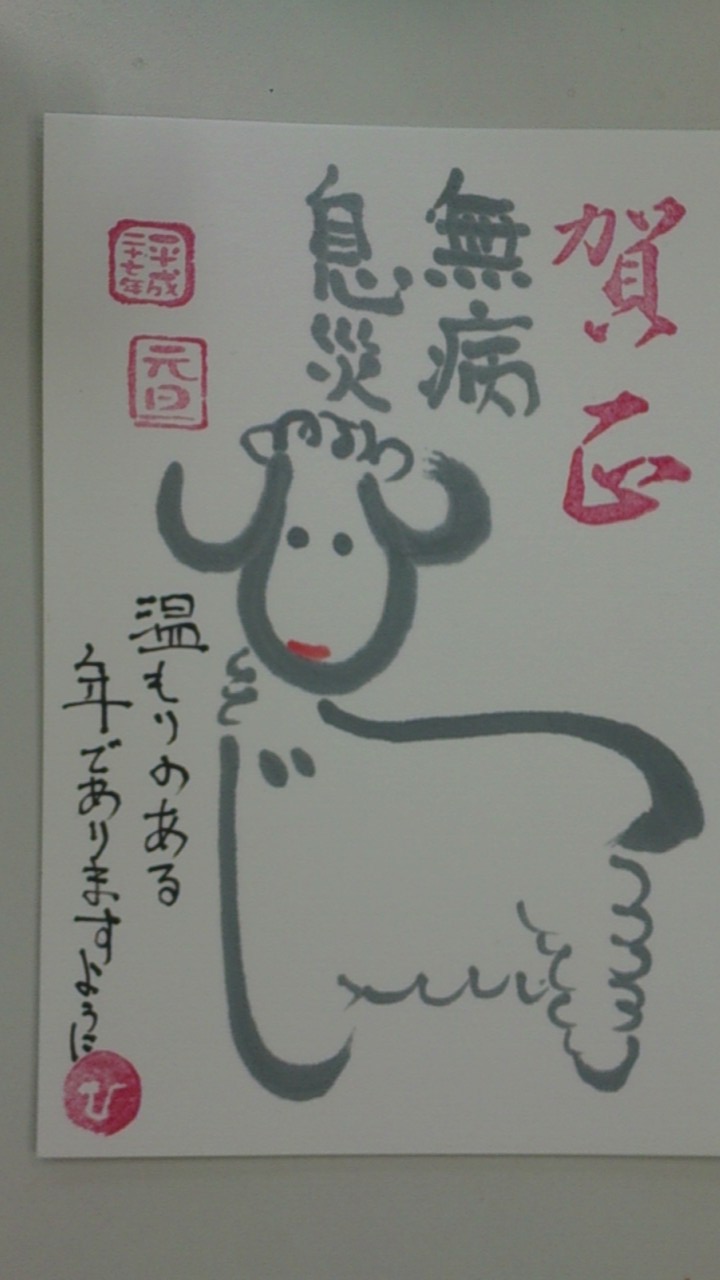 賀正
無病
息災
平成
二十七年
元旦
温もりのある
年でありますように
ひ